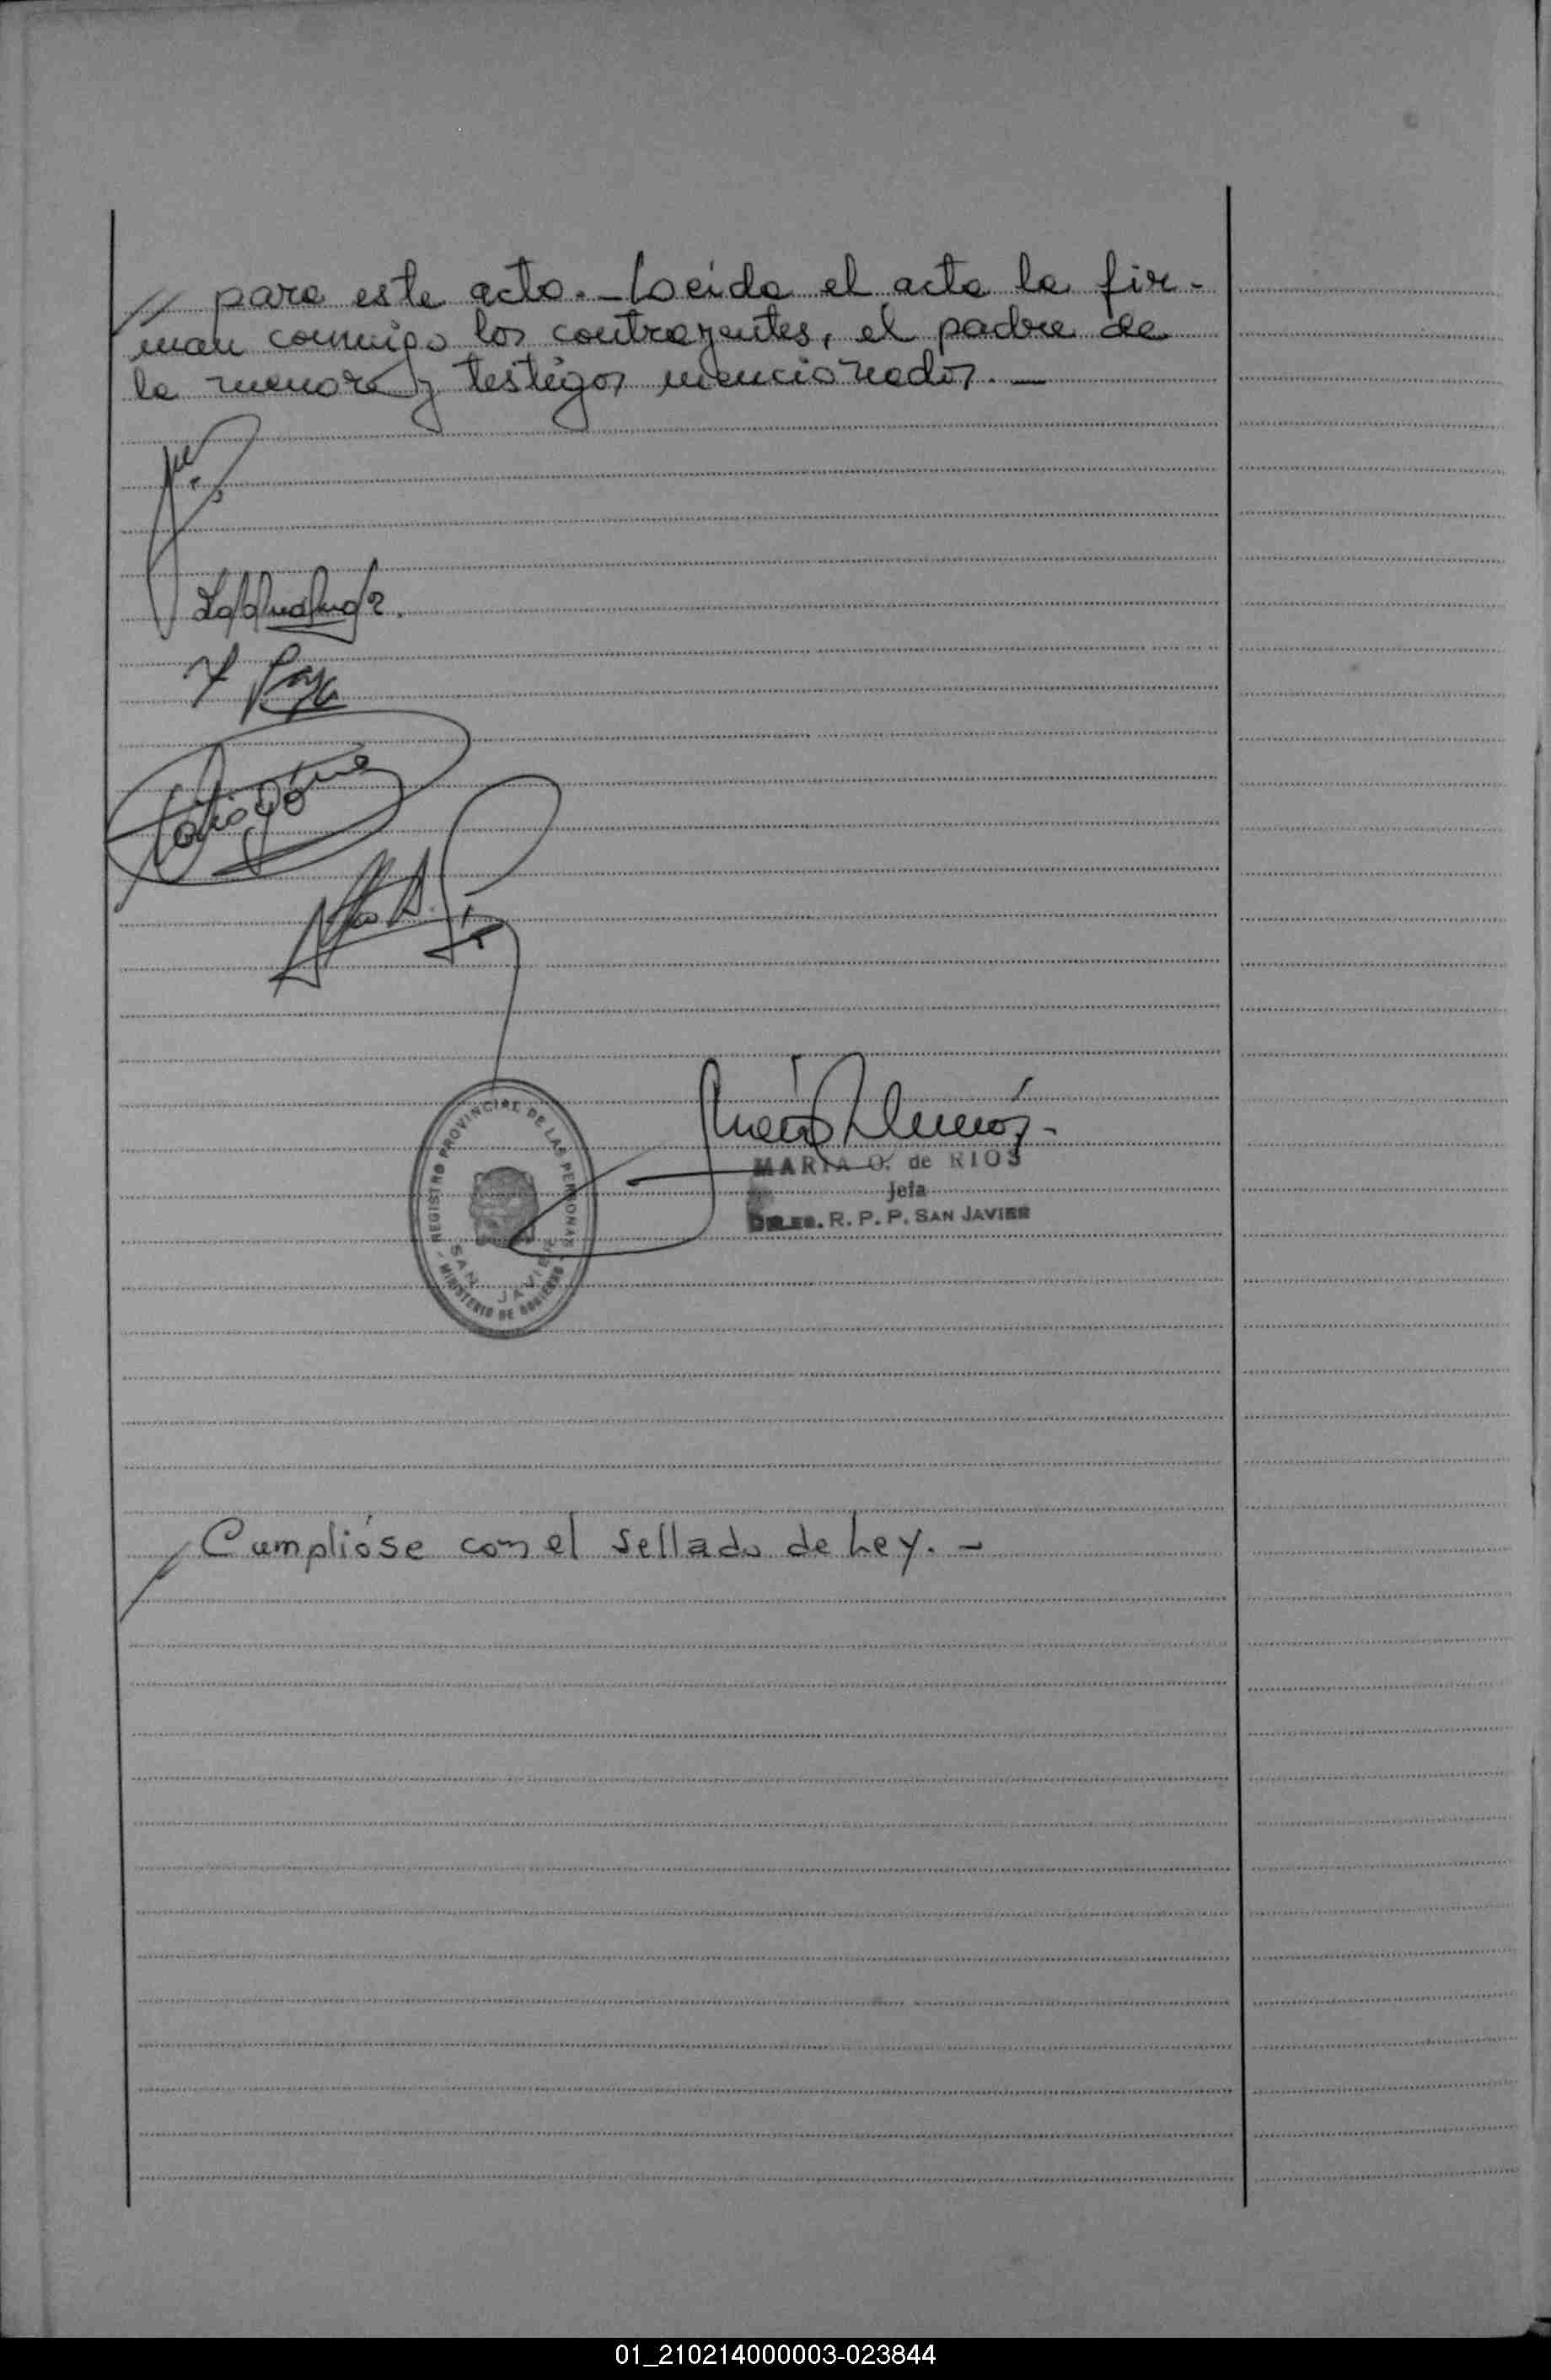 // para este acto. - Leída el acta la fir-
man conmigo los contrayentes, el padre de
la menora y testigos mencionados. —
REGISTRO PROVINCIAL DE LAS PERSONAS
SAN JAVIER
- MINISTERIO DE GOBIERNO -
MARIA O. de RIOS
Jefa
R. P. P. SAN JAVIER
/ Cumplióse con el sellado de Ley. -
01_210214000003-023844